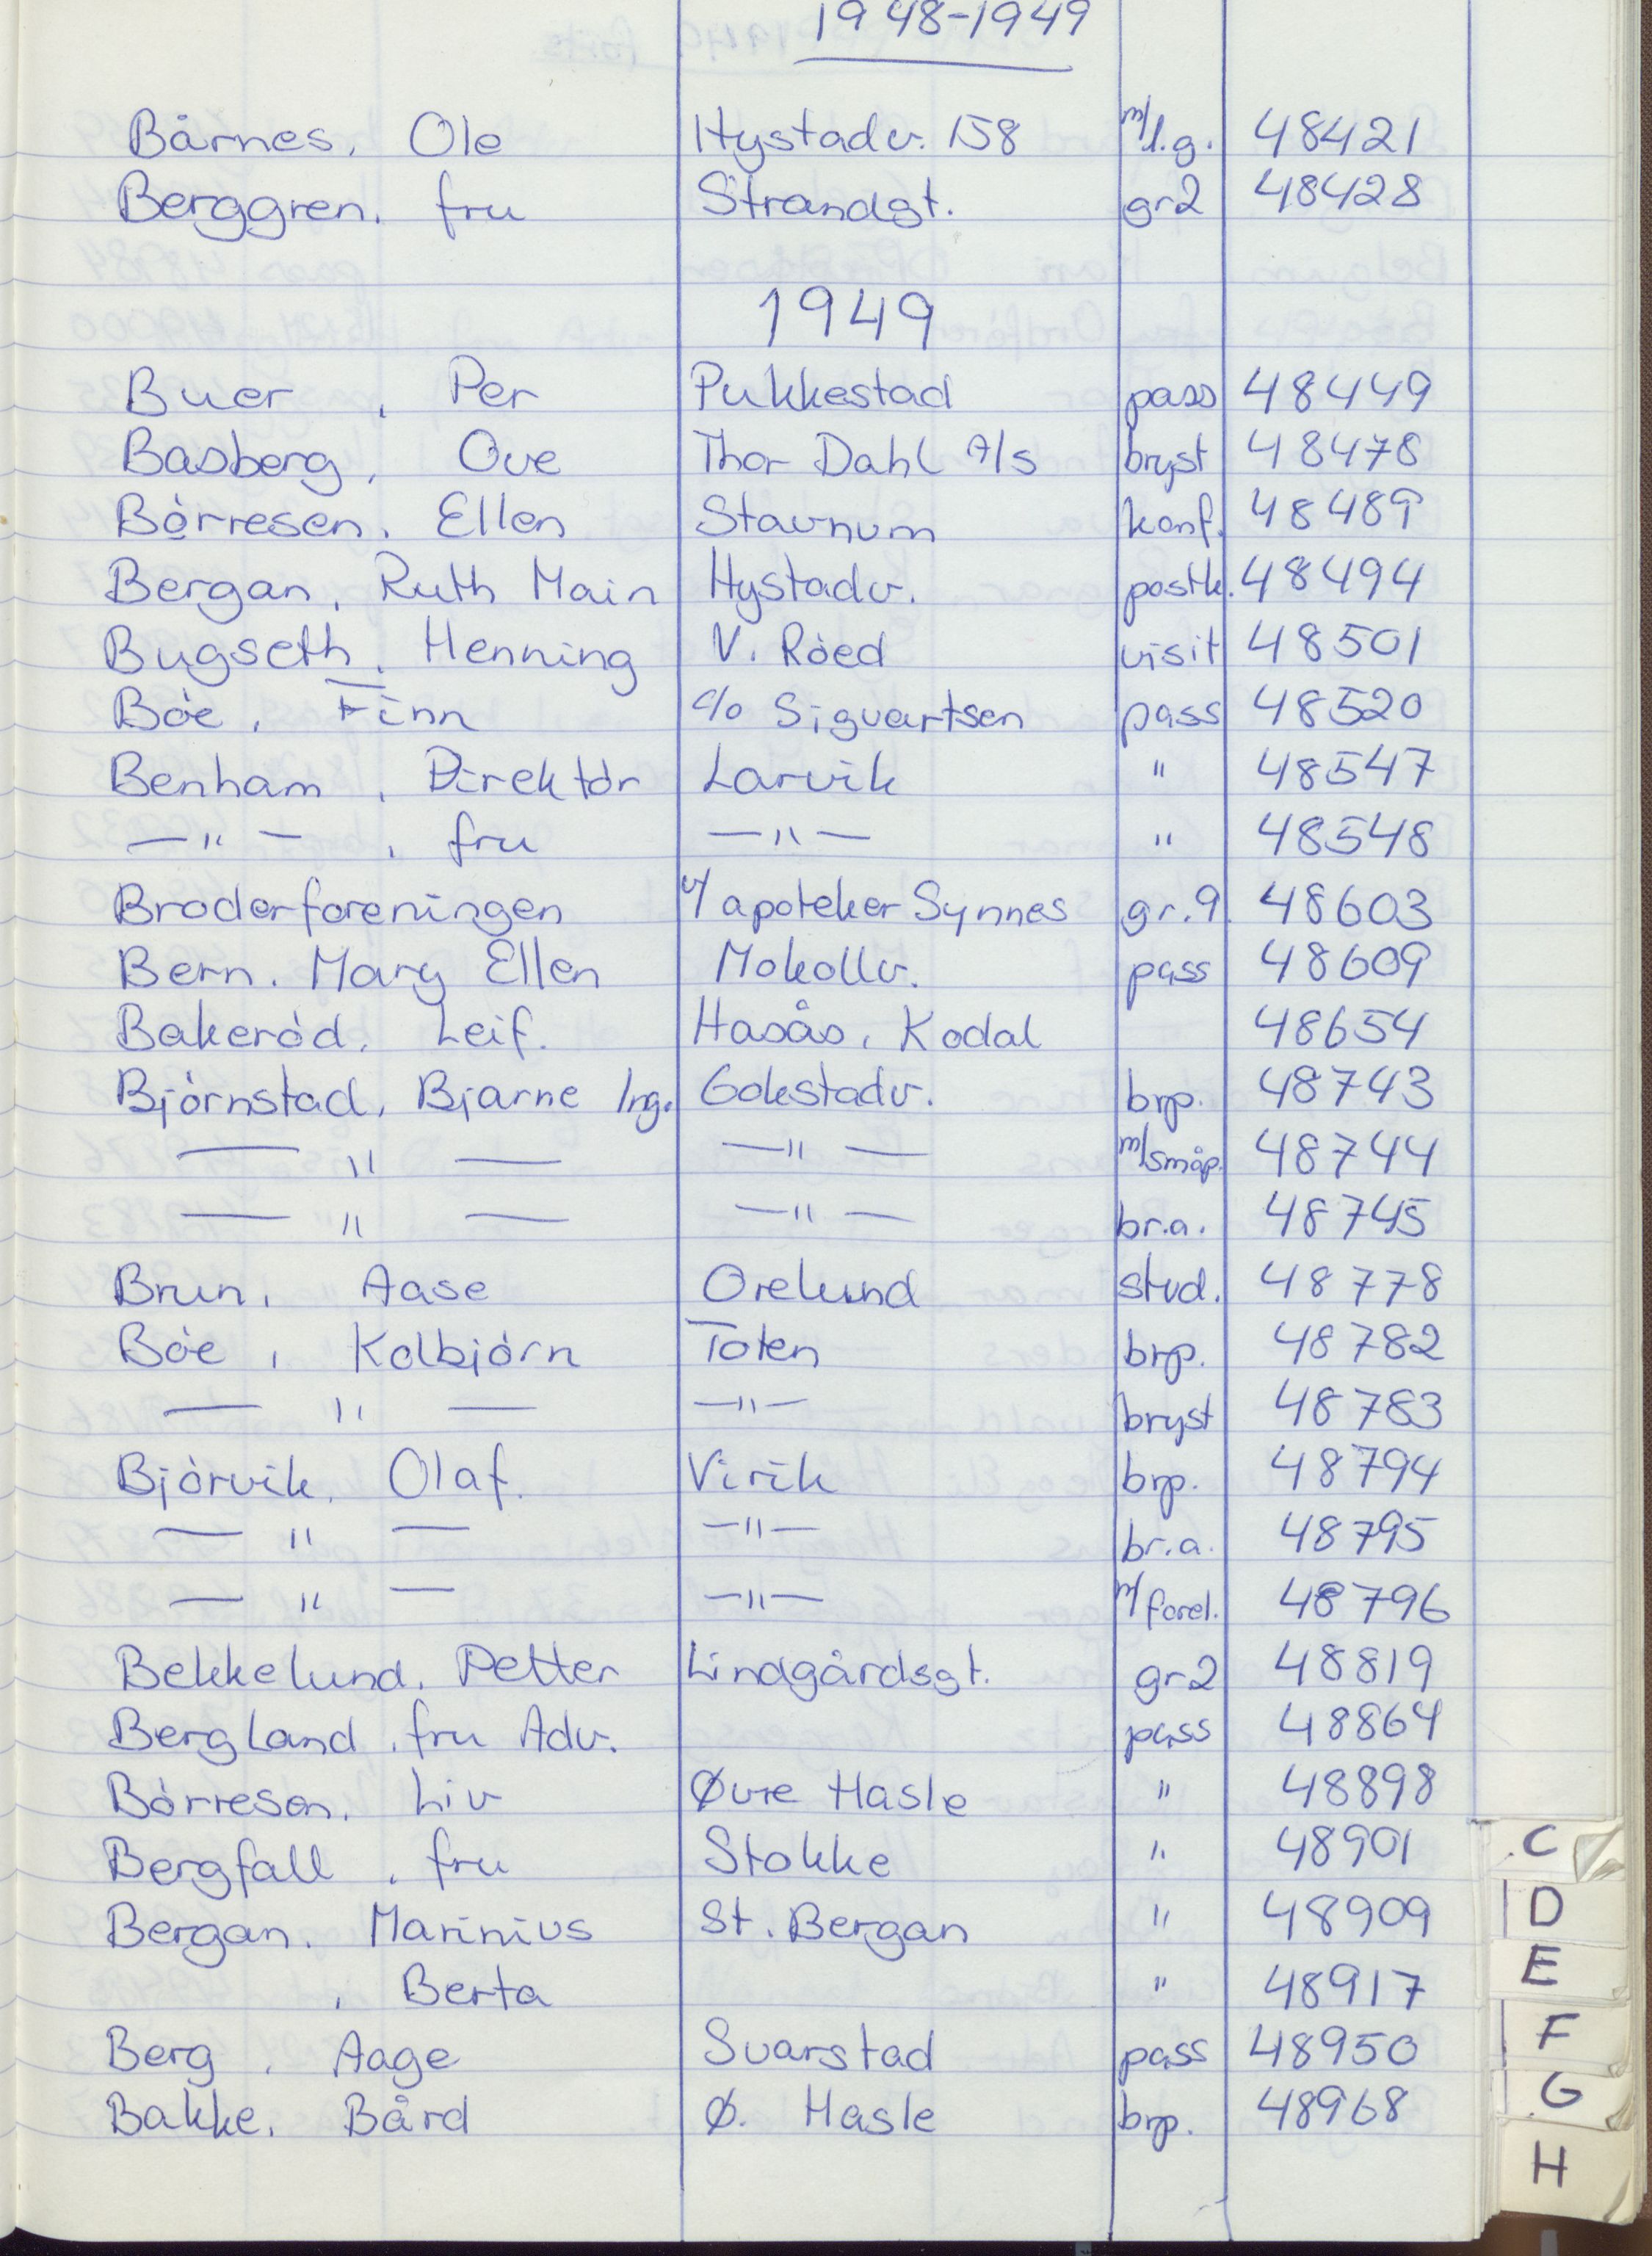 1948-1949
Bårnes, Ole Hystadv. 158 m/l.g. 48421
Berggren, fru Strandgt. gr2 48428
1949
Buer, Per Pukkestad pass 48449
Basberg, Ove Thor Dahl A/S bryst 48478
Börresen, Ellen Stavnum konf. 48489
Bergan, Ruth Main Hystadv. postk. 48494
Bugseth, Henning V. Röed visit 48501
Böe, Finn c/o Sigvartsen pass 48520
Benham, Direktör Larvik " 48547
—"— , fru —"— " 48548
Broderforeningen v/ apoteker Synnes gr.9. 48603
Bern. Mary Ellen Mokollv. pass 48609
Bakeröd, Leif. Hasås, Kodal 48654
Björnstad, Bjarne Ing. Gokstadv. brp. 48743
—"— —"— m/småp. 48744
—"— —"— br.a. 48745
Brun, Aase Orelund stud. 48778
Böe, Kolbjörn Toten brp. 48782
—"— —"— bryst 48783
Björvik, Olaf. Virik brp. 48794
—"— —"— br.a. 48795
—"— —"— m/forel. 48796
Bekkelund, Petter Lindgårdsgt. gr2 48819
Bergland, fru Adv. pass 48864
Börresen, Liv Øvre Hasle " 48898
Bergfall, fru Stokke " 48901
Bergan, Marinius St. Bergan " 48909
, Berta " 48917
Berg, Aage Svarstad pass 48950
Bakke, Bård Ø. Hasle brp. 48968
C
D
E
F
G
H